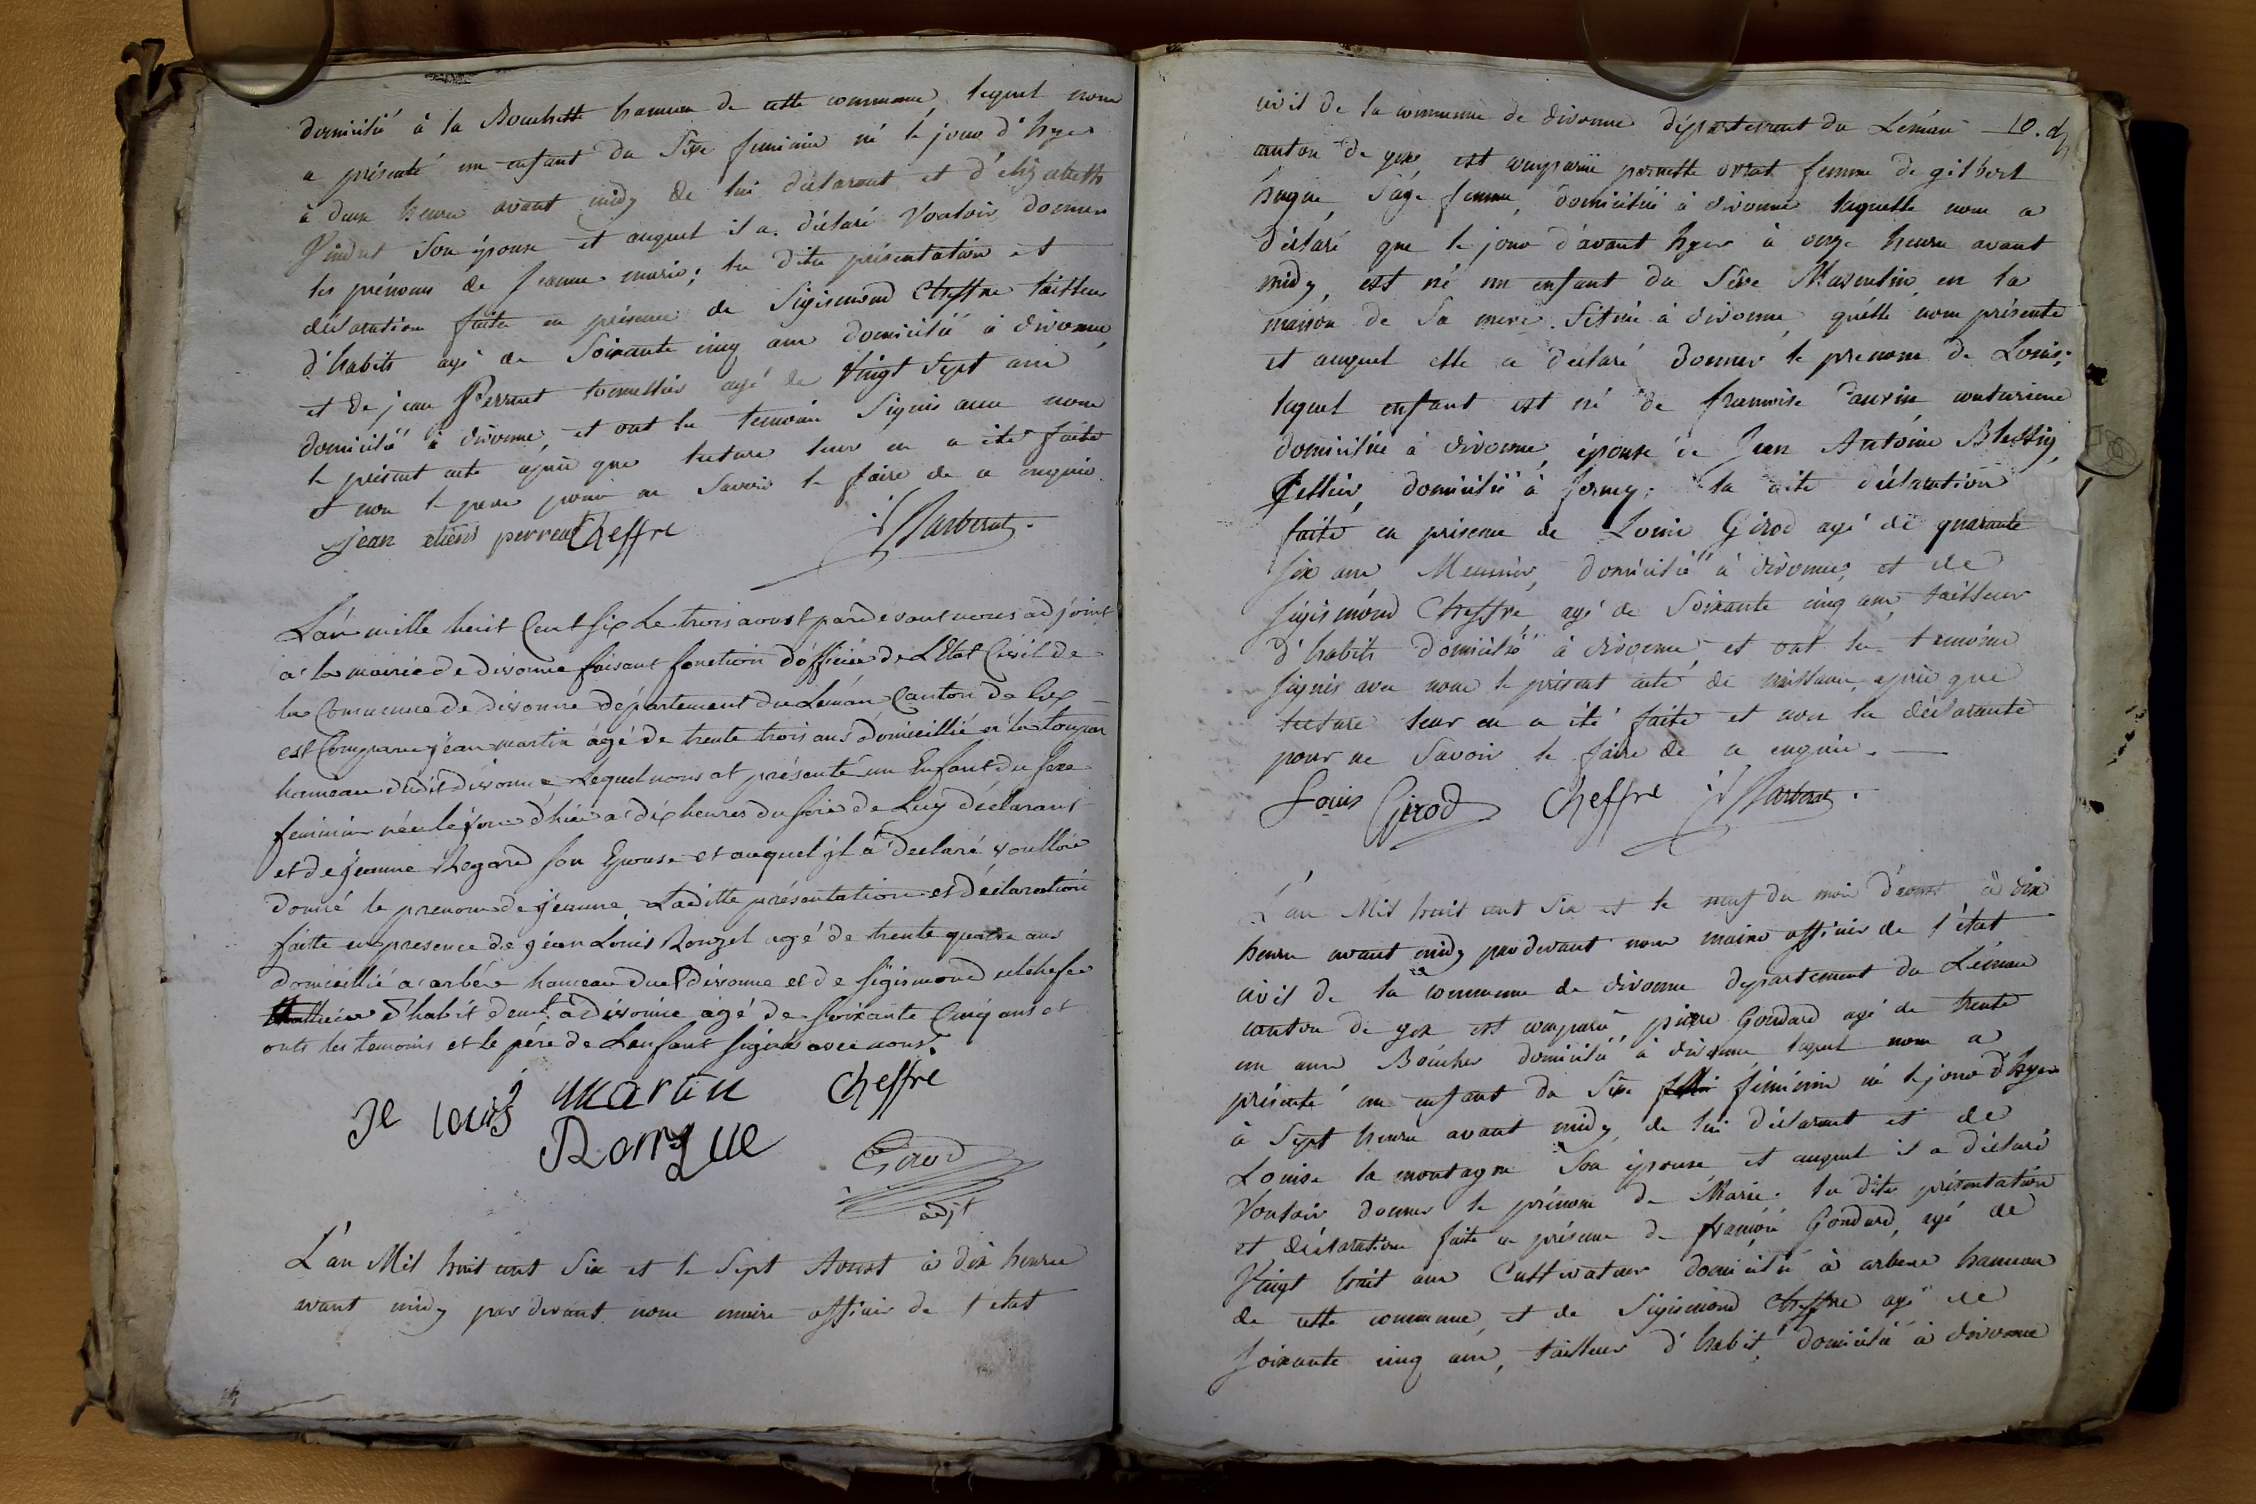 domicilié à la Bouchett hameau de cette commune, lequel nous
a présenté un enfant du Sexe feminin né le jour d'hyer
à deux heures avant midy de lui déclarant et d'élizabeth
son épouse et auquel il a déclaré Vouloir donner
les prénoms de Jeanne marie; la dite présentation et
déclaration faite en présence de Sigismond Cheffre tailleur
d'habits agé de Soixante cinq ans domicilié à divonne,
et de jean Perrent tonnellier agé de Vingt Sept ans
domicilié à divonne, et ont les temoins Signés avec nous
le présent acte après que lecture leur en a été faite
et non le pere pour ne Savoir le faire de ce enquis.
jean perreat Cheffre
L'an mille huit Cent Six Le trois aoust pardevant nous adjoint
à la mairie de divonne faisant fonction d'officier de L'Etat Civil de
la Commune de divonne département du Léman Canton de Gex
est Comparu jean martin agé de trente trois ans domicillié à la
hameau dudit divonne Lequel nous at présenté un Enfant du Sexe
feminin née le jour d'hier à dix heures du soir de Luy déclarant
et de jeanne Regard son Epouse et auquel jl à déclaré voulloir
donné le prenom de jeanne, Laditte présentation et déclaration
faitte en presence de jean Louis Ronzel agé de trente quatre ans
domicillié a arbére hameau dud divonne et de sigismond
d'habit à divonne agé de soixante Cinq ans et
onts les temoins et le père de Lenfant signés avec nous.
martin Cheffre
je louis
Girod
adjt
L'an Mil huit cent Six et le Sept Aoust à dix heures
avant midy par devant nous maire officier de l'etat
civil de la commune de divonne département du Léman 10. d
canton de gex est comparüe pernette femme de gilbert
hugue, Sage femme, domiciliée à divonne laquelle nous a
déclaré que le jour d'avant hyer à onze heures avant
midy, est né un enfant du Sexe Masculin, en la
maison de Sa mere Située à divonne, quelle nous présente
et auquel elle a déclaré donner le prenom de Louis;
lequel enfant est né de francoise couturiere
domiciliée à divonne, épouse de Jean Antoine
Sellier, domicilié à ferney; la dite déclaration
faite en présence de Louis Girod agé de quarante
six ans Meunier, domicilié à divonne, et de
Sigismond Cheffre, agé de Soixante cinq ans, tailleur
d'habits domicilié à divonne, et ont les temoins
signés avec nous le présent acte de naissance, après que
lecture leur en a été faite et non la déclarante
pour ne Savoir le faire de ce enquise.
Louis Girod Cheffre
L'an Mil huit cent Six et le neuf du mois d'aoust à dix
heures avant midy par devant nous maire officier de l'état
civil de la commune de divonne departement du Léman
canton de gex est comparu, pierre Goudard agé de trente
un ans Boucher domicilié à divonne lequel nous a
présenté un enfant du Sexe féminin né le jour d'hyer
à Sept heures avant midy de lui déclarant et de
Louise la montagne Son épouse et auquel il a déclaré
Vouloir donner le prénom de Marie. la dite présentation
et déclaration faite en présence de françois Goudard, agé de
Vingt huit ans Cultivateur domicilié à arbere hameau
de cette commune, et de Sigismond Cheffre agé de
soixante cinq ans, tailleur d'habit, domicilié à divonne